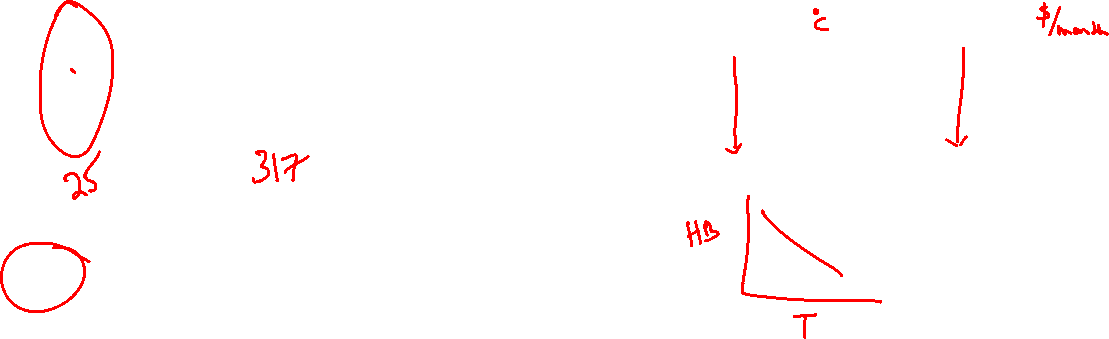 °C
$/month
25
317
HB
T